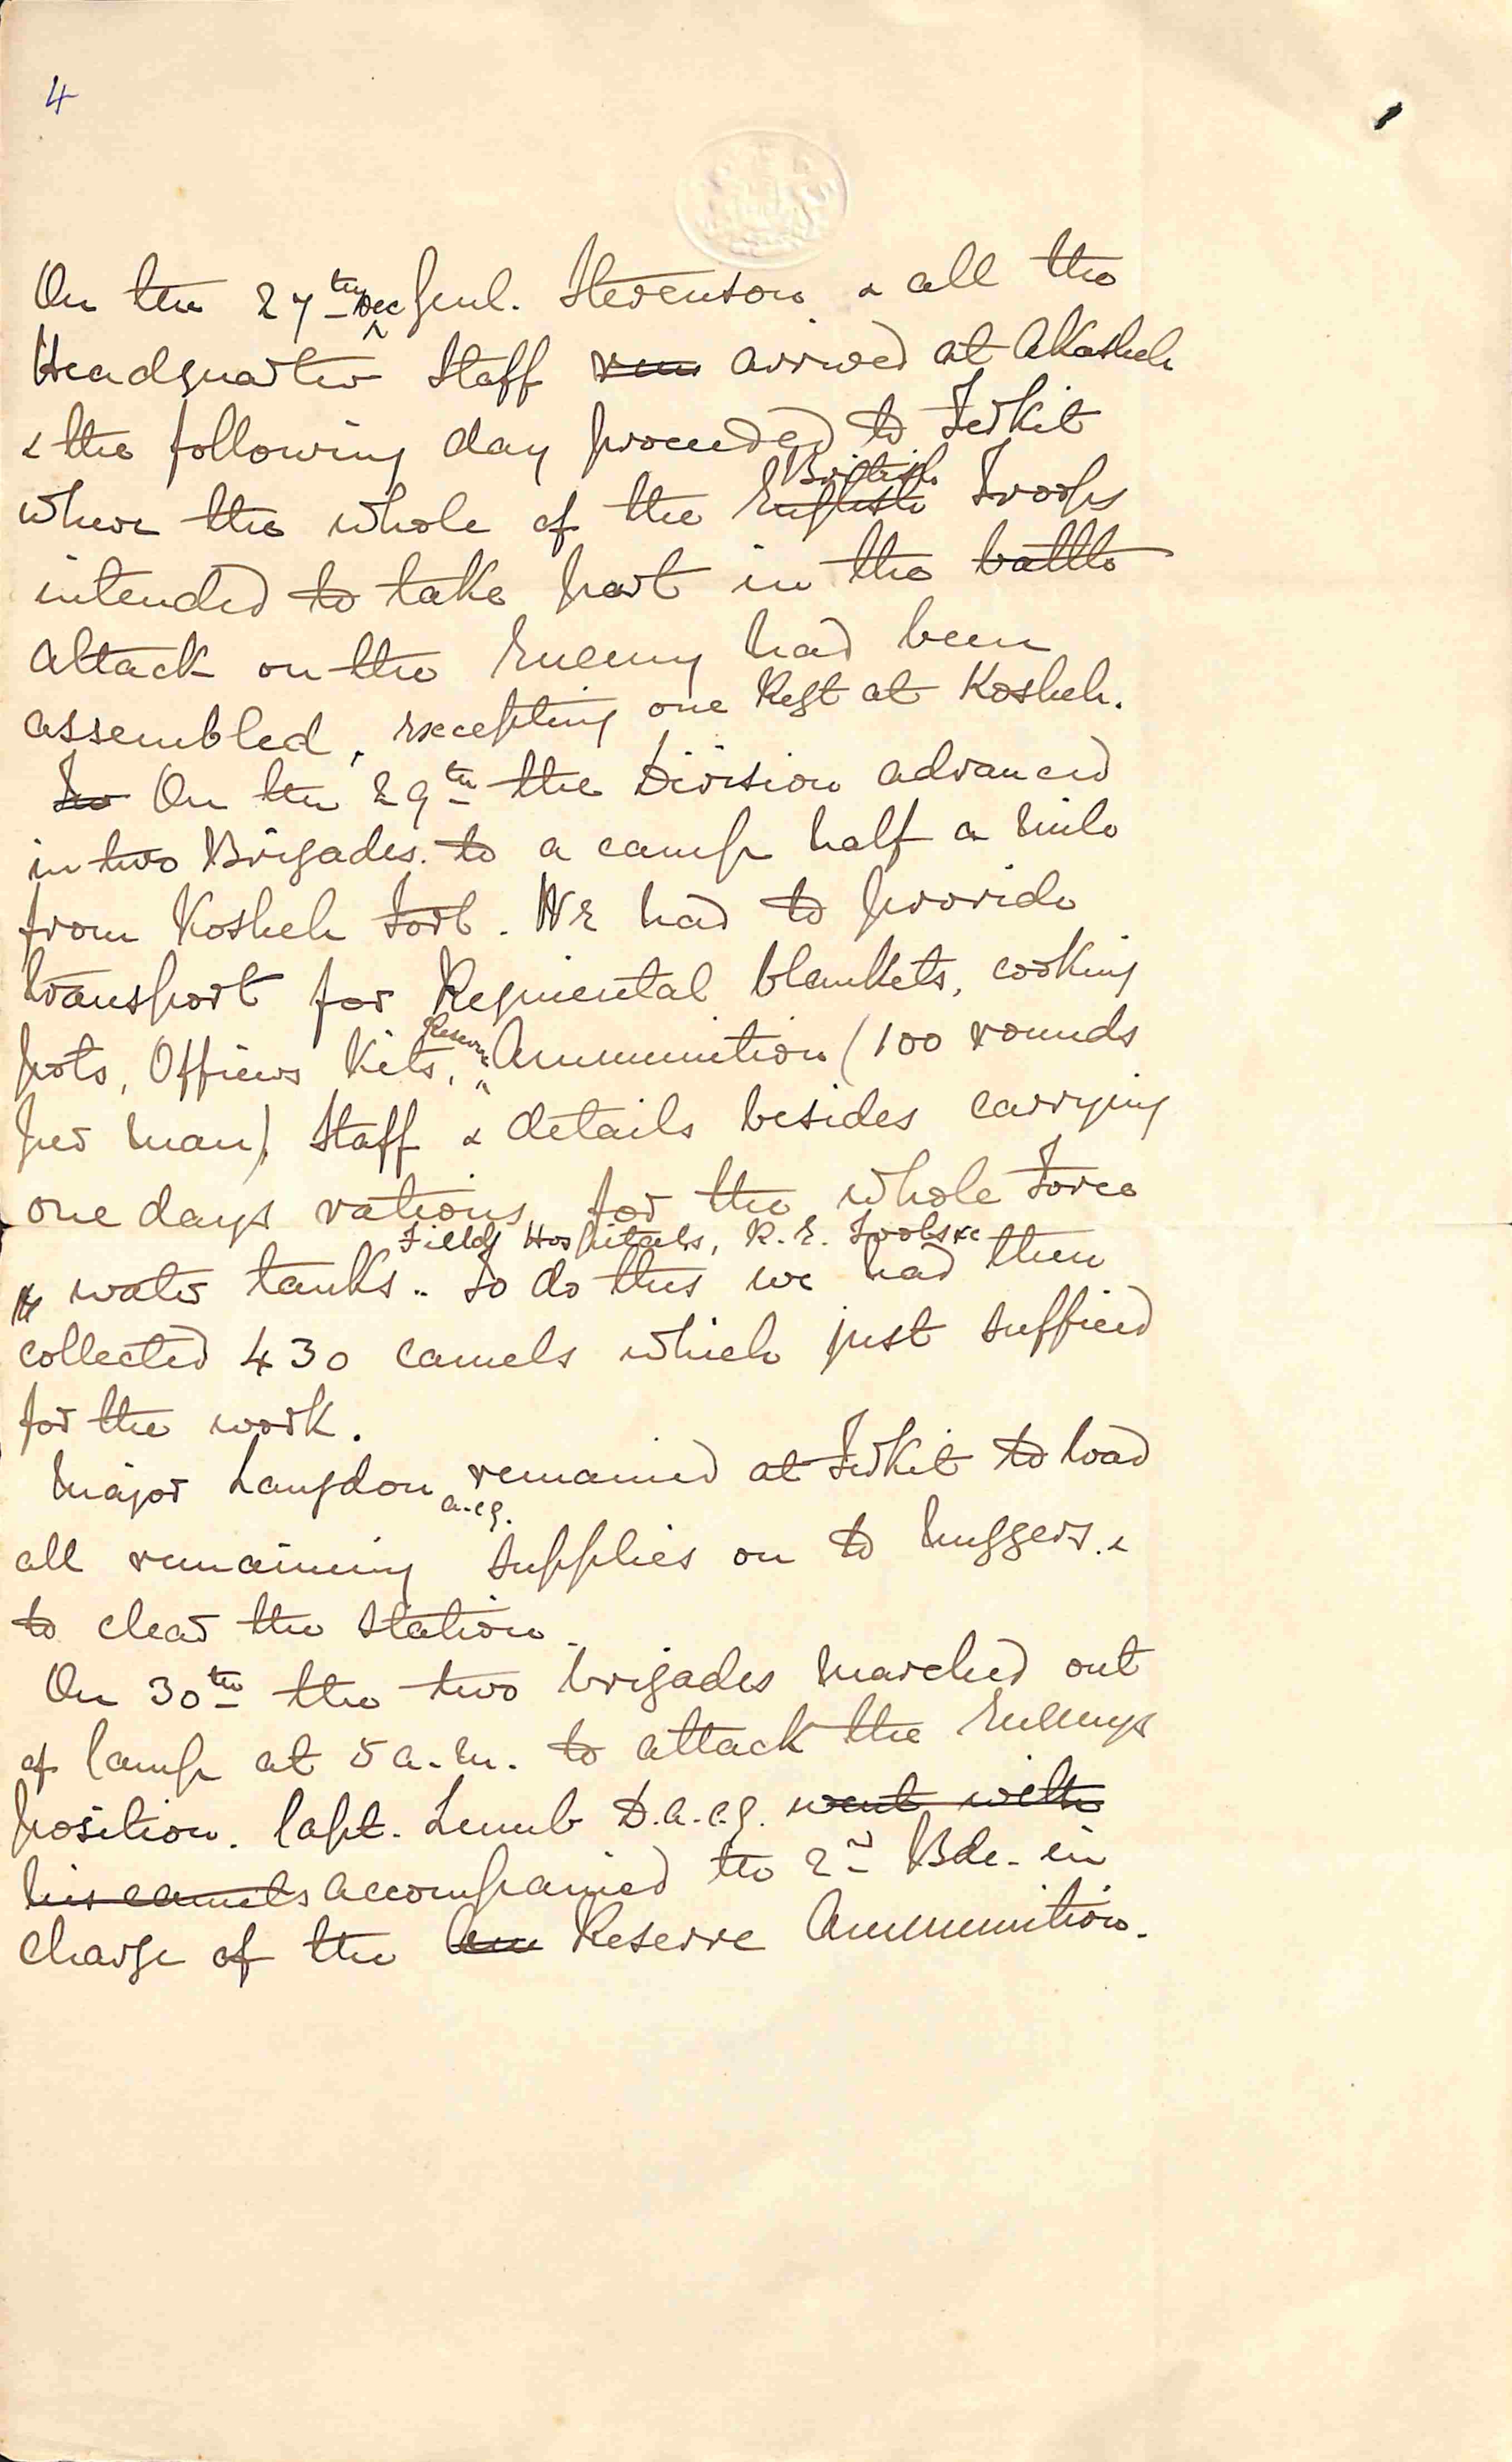 4
On the 27th Dec Genl. Stevenson & all the
Headquarter Staff arrived at Akasheh
& the following day proceeded to Ferkit
British
where the whole of the English Troops
intended to take part in the battle
attack on the Enemy had been
assembled, excepting one Regt at Kosheh.
On the 29th the Division advanced
in two Brigades. to a camp half a mile
from Kosheh Fort. We had to provide
transport for Regimental blankets, cooking
Reserve
pots, Officers Kits, Ammunition (100 rounds
per man), Staff & details besides carrying
one days rations for the whole Force
Field Hospitals, R.E. Tools &c
& water tanks.. To do this we had then
collected 430 camels which just sufficed
for the work.
Major Langdon remained at Ferkit to load
a.c.g.
all remaining supplies on to nuggers. &
to clear the station.
On 30th the two brigades marched out
of Camp at 5 a.m. to attack the Enemys
position. Capt. Lumb D.a.c.g. went with
his camels accompanied the 2nd Bde. in
charge of the Am Reserve Ammunition.